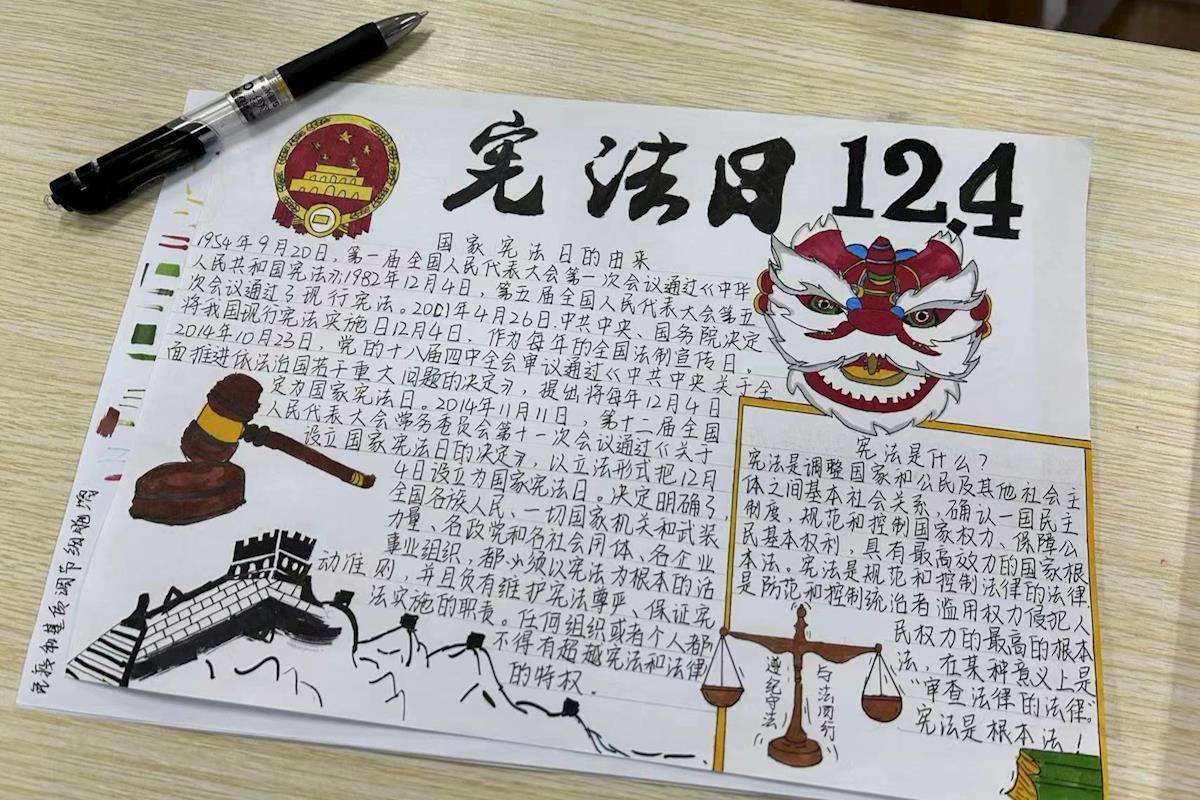 宪法日12.4
国家宪法日的由来
1954年9月20日，第一届全国人民代表大会第一次会议通过《中华
人民共和国宪法》，1982年12月4日，第五届全国人民代表大会第五
次会议通过了现行宪法。2001年4月26日，中共中央、国务院决定
将我国现行宪法实施日12月4日，作为每年的全国法制宣传日。
2014年10月23日，党的十八届四中全会审议通过《中共中央关于全
面推进依法治国若干重大问题的决定》，提出将每年12月4日
定为国家宪法日。2014年11月11日，第十二届全国
人民代表大会常务委员会第十一次会议通过《关于
设立国家宪法日的决定》，以立法形式把12月
4日设立为国家宪法日。决定明确了，
全国各族人民、一切国家机关和武装
力量、各政党和各社会团体、各企业
事业组织，都必须以宪法为根本的活
动准则，并且负有维护宪法尊严、保证宪
法实施的职责。任何组织或者个人都
不得有超越宪法和法律
的特权．
宪法是什么？
宪法是调整国家和公民及其他社会主
体之间基本社会关系、确认一国民主
制度，规范和控制国家权力、保障公
民基本权利，具有最高效力的国家根
本法。宪法是规范和控制法律的法律．
是防范和控制统治者滥用权力侵犯人
民权力的最高的根本
法，在某种意义上是
“审查法律的法律”。
宪法是根本法！
遵纪守法
与法同行